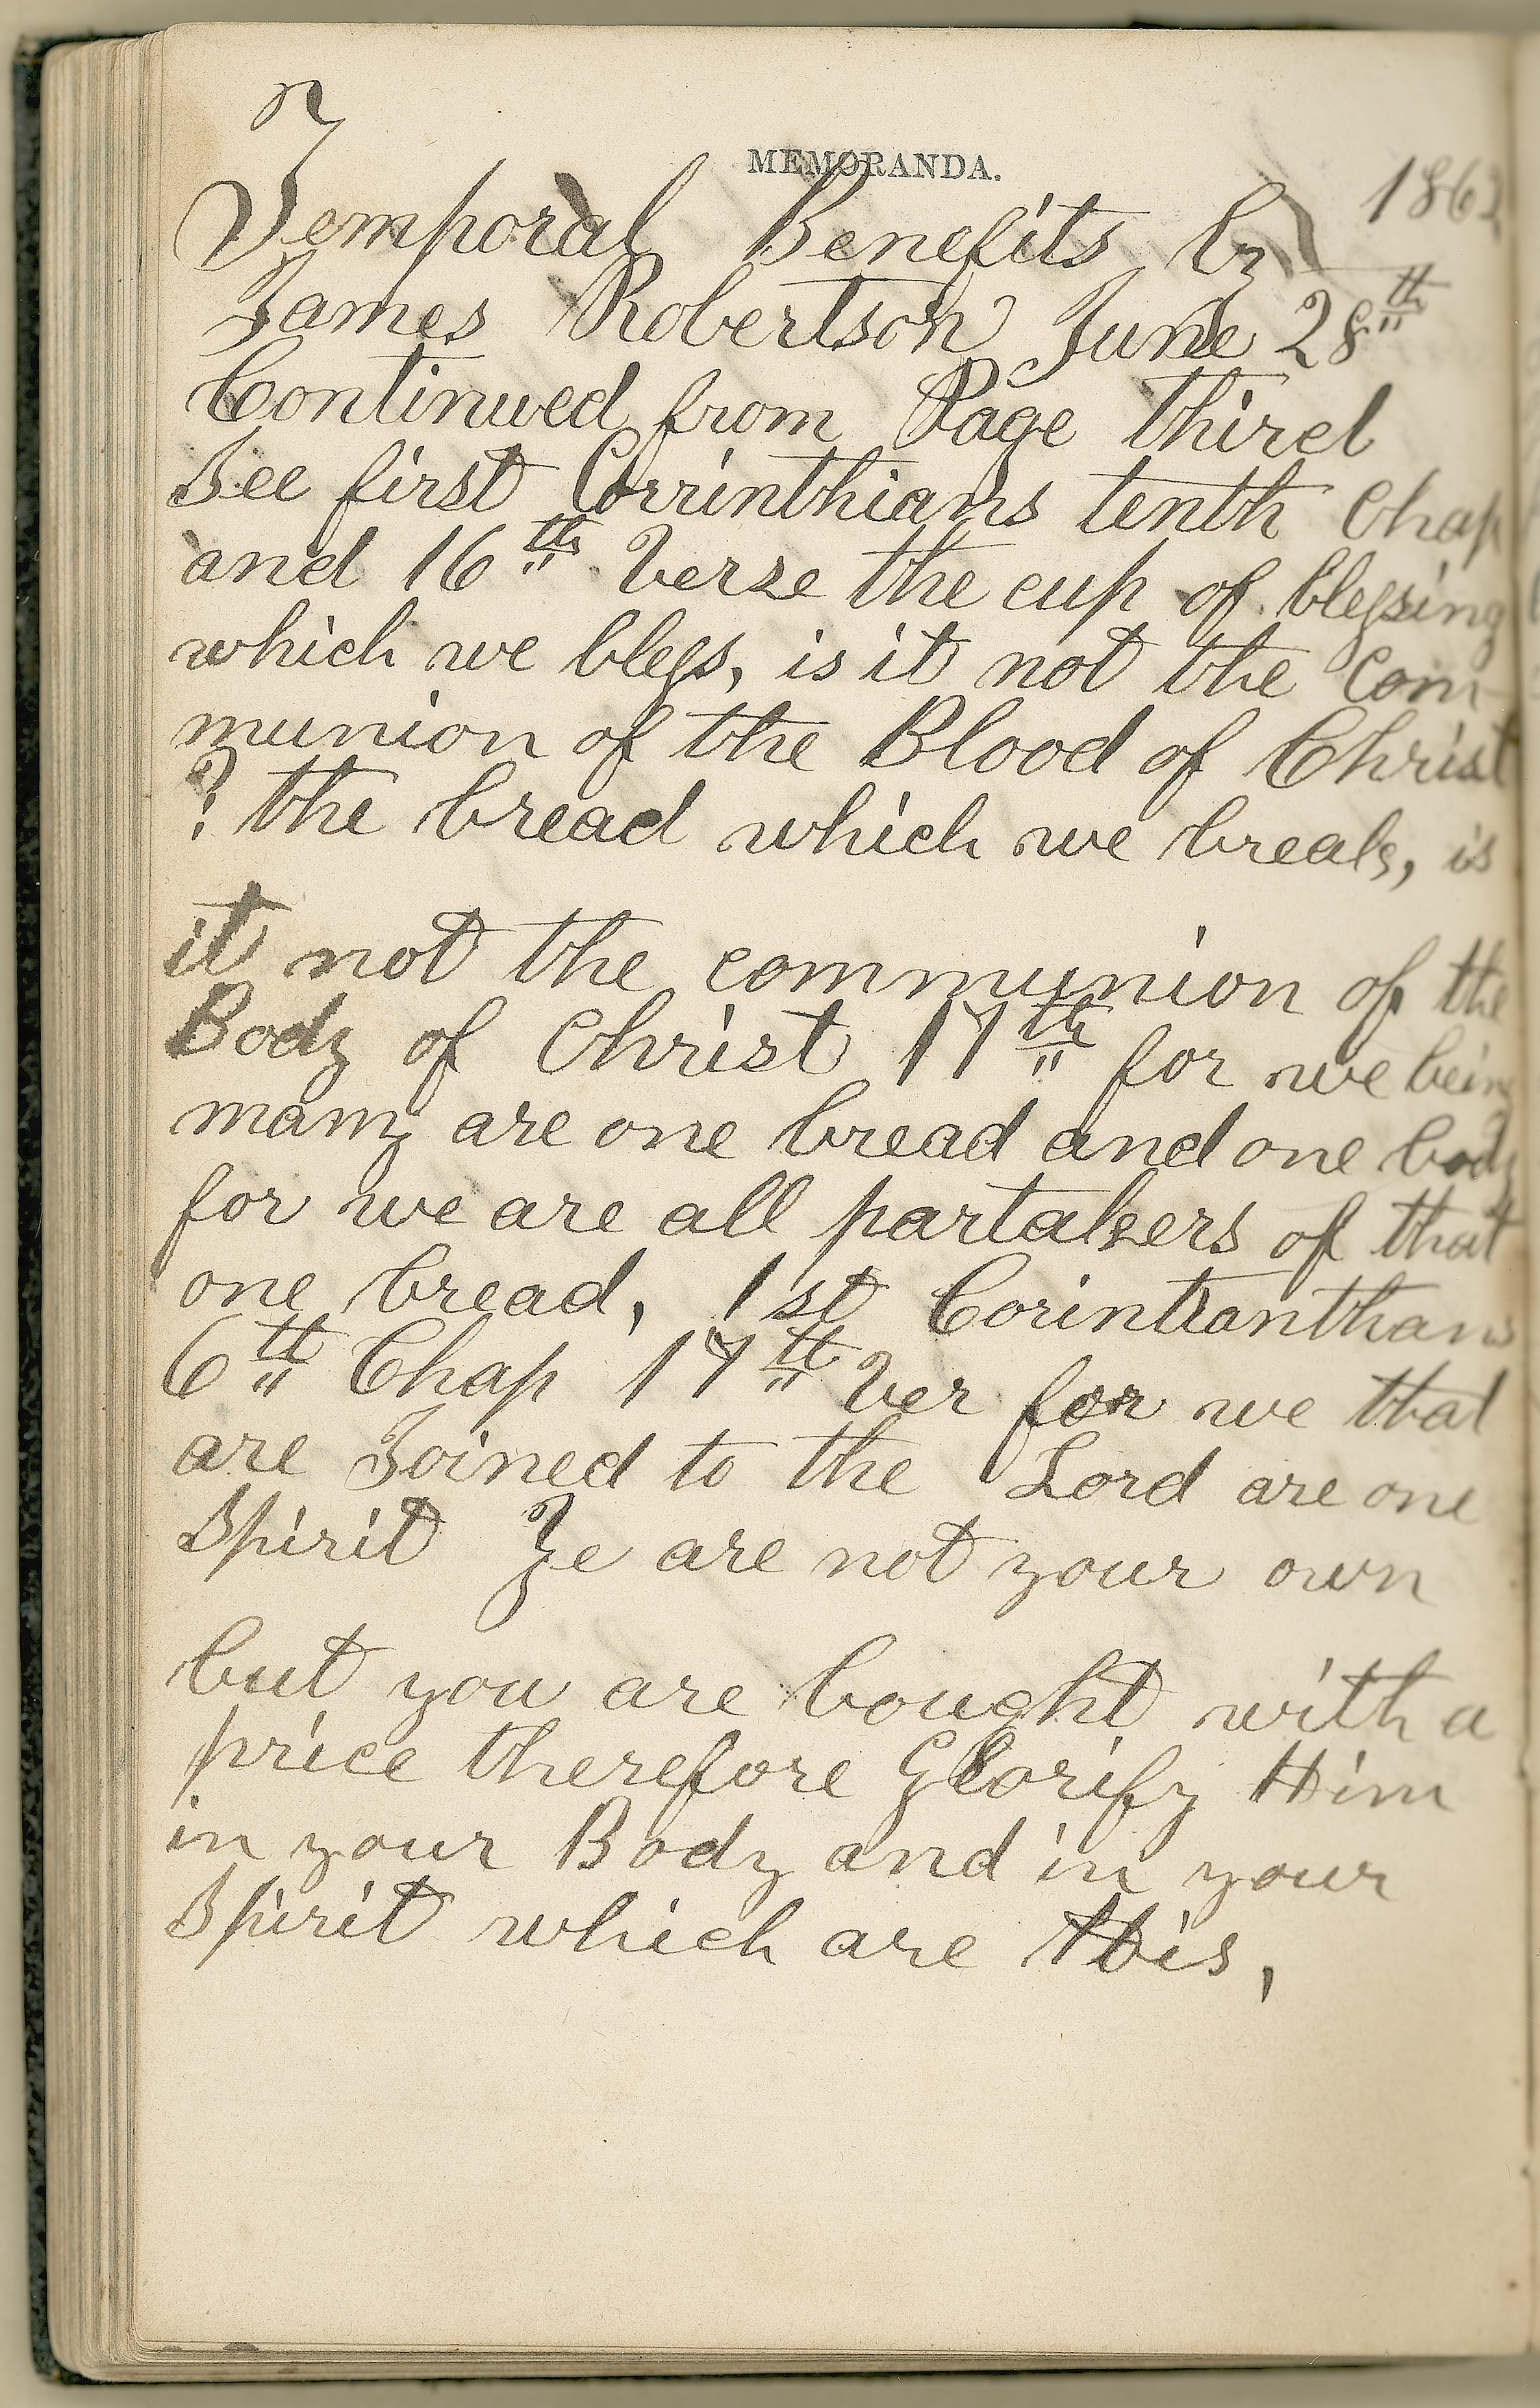 MEMORANDA.
1862
Temporal Benefits by
James Robertson June 28th
Continued from Page third
See first Corrinthians tenth Chap
and 16th Verse the cup of blessing
which we bless, is it not the Com
munion of the Blood of Christ
? the bread which we break, is
it not the communion of the
Body of Christ 17th for we being
many are one bread and one body
for we are all partakers of that
one bread, 1st Corintianthans
6th Chap 17th Ver for we that
are Joined to the Lord are one
Spirit Ye are not your own
but you are bought with a
price therefore Glorify Him
in your Body and in your
Spirit which are His,